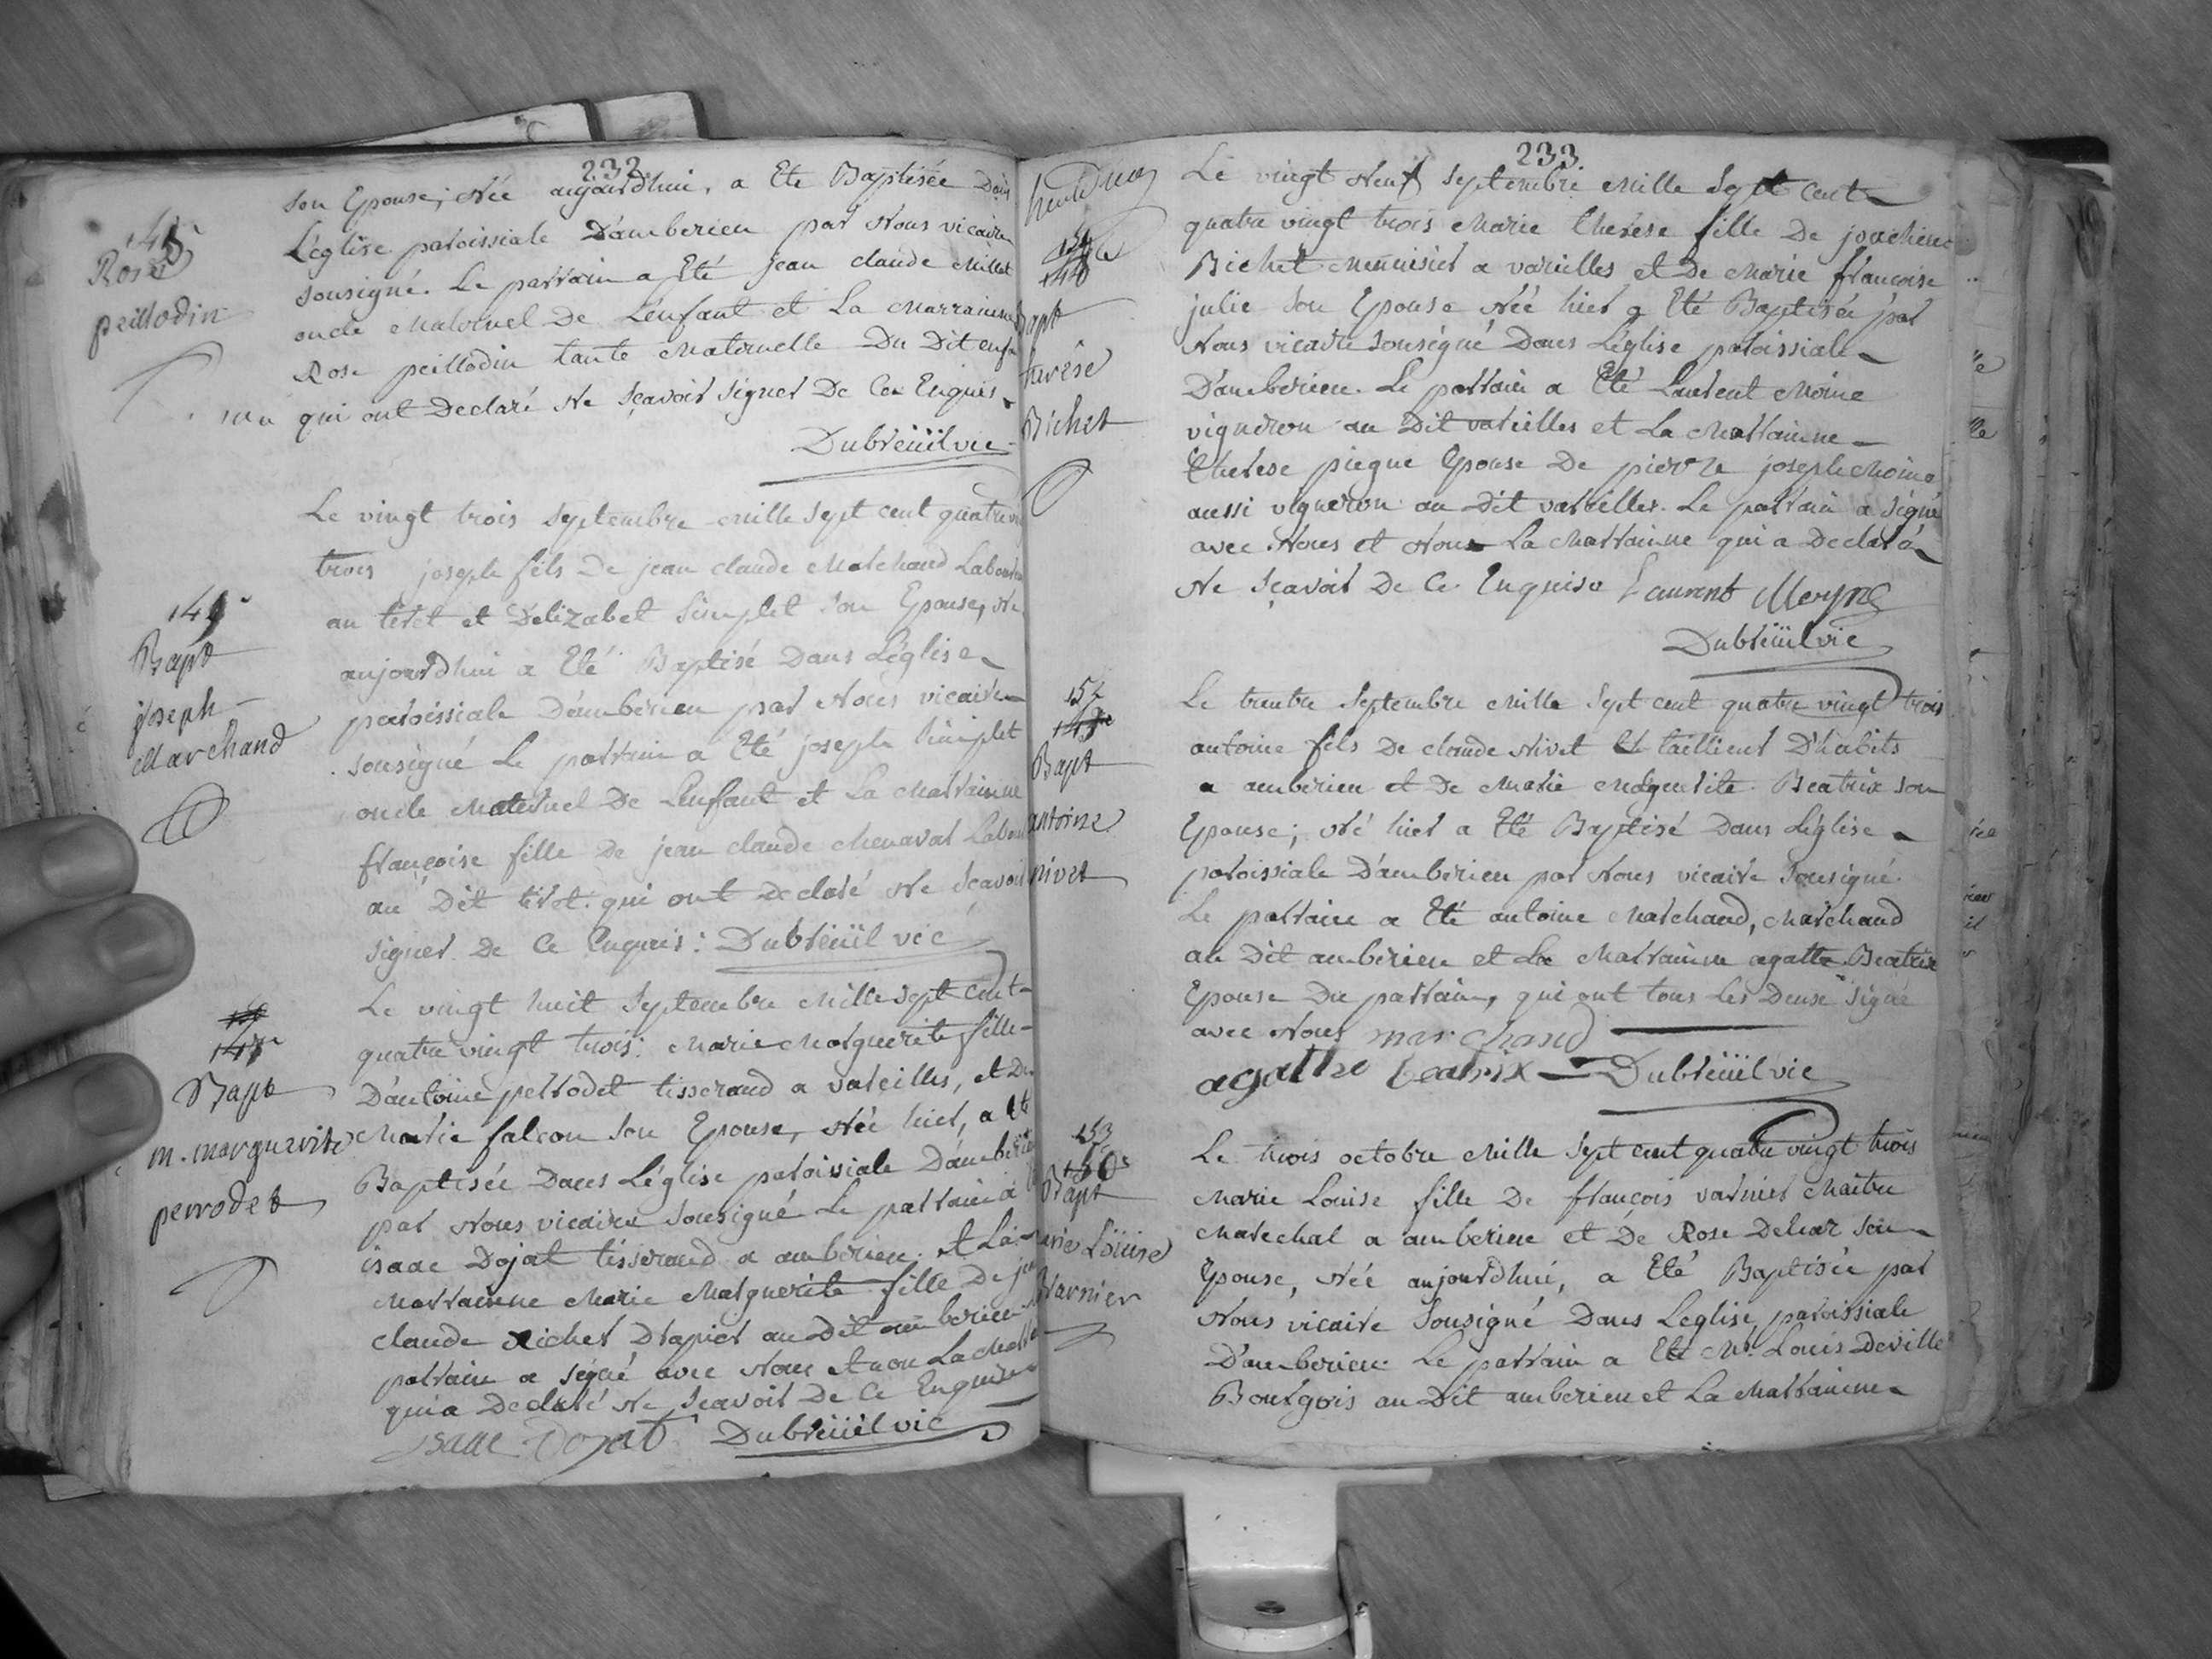 232
148
Rose
peillodin
son Epouse; Née aujourdhui, a Eté Baptisée Dans
L'église paroissiale D'amberieu par Nous vicaire
sousigné. Le parrain a Eté jean claude Millet
oncle Maternel De L'enfant et La Marrainne
Rose peillodin tante Maternelle Du Dit enfa
qui ont Declaré Ne sçavoir signer De Ce Enquis
Dubreüil vic
149
Bapt
joseph
Marchand
Le vingt trois Septembre Mille Sept cent quatre vin
trois joseph fils De jean claude Marchand Laboureu
au tiret et Delizabet Simplet son Epouse, Né
aujourdhui a Eté Baptisé Dans L'église
paroissiale D'amberieu par Nous vicaire
sousigné Le parrain a Eté joseph Simplet
oncle Maternel De L'enfant et La Marrainne
françoise fille De jean claude chenavat Labou
au Dit tiret qui ont Declaré Ne sçavoir
signer De Ce Enquis: Dubreüil vic
Bapt
m. marguerite
perrodet
Le vingt huit Septembre Mille Sept Cent
quatre vingt trois: Marie Marguerite fille
D'antoine perrodet tisserand a vareilles, et De
Marie falcon son Epouse, Née hier, a Eté
Baptisée Dans L'église paroissiale D'amberieu
par Nous vicaire sousigné Le parrain a
isaac Dojat tisserand a amberieu. et La
Marrainne Marie Marguerite fille De jea
claude Richer Drapier au Dit amberieu
parrain a signé avec Nous et non La Marr
qui a Declaré Ne sçavoir De Ce Enquise
isaac Dojat Dubreüil vic
233
Bapt
Bichet
Le vingt Neuf Septembre Mille Sept cent
quatre vingt trois Marie therése fille De joachim
Bichet Menuisier a vareilles et De Marie francoise
julie son Epouse Née hier a Eté Baptisée par
Nous vicaire sousigné Dans L'église paroissiale
D'amberieu. Le parrain a Eté Laurent Moine
vigneron au Dit vareilles et La Marrainne
therese piegue Epouse De pierre joseph Moine
aussi vigneron au Dit vareilles. Le parrain a signé
avec Nous et Non La Marrainne qui a Declaré
Ne sçavoir De Ce Enquise Laurent Moyne
Dubreüil vic
152
Bapt
antoine
nivet
Le trente Septembre Mille Sept cent quatre vingt trois
antoine fils De claude Nivet tailleur D'habits
a amberieu et De Marie Marguerite Beatrix son
Epouse; Né hier a Eté Baptisé Dans L'église
paroissiale D'amberieu par Nous vicaire sousigné.
Le parrain a Eté antoine Marchand, Marchand
au Dit amberieu et La Marrainne agatte Beatrix
Epouse Du parrain, qui ont tous Les Deux signé
avec Nous marchand
agatte beatrix = Dubreüil vic
153
Bapt
arie Loüise
Varnier
Le trois octobre Mille Sept cent quatre vingt trois
Marie Louise fille De françois varnier Maitre
Marechal a amberieu et De Rose Delior son
Epouse, Née aujourdhui, a Eté Baptisée par
Nous vicaire sousigné Dans L'eglise paroissiale
D'amberieu. Le parrain a Eté Mr. Louis Deville
Bourgois au Dit amberieu et La Marrainne